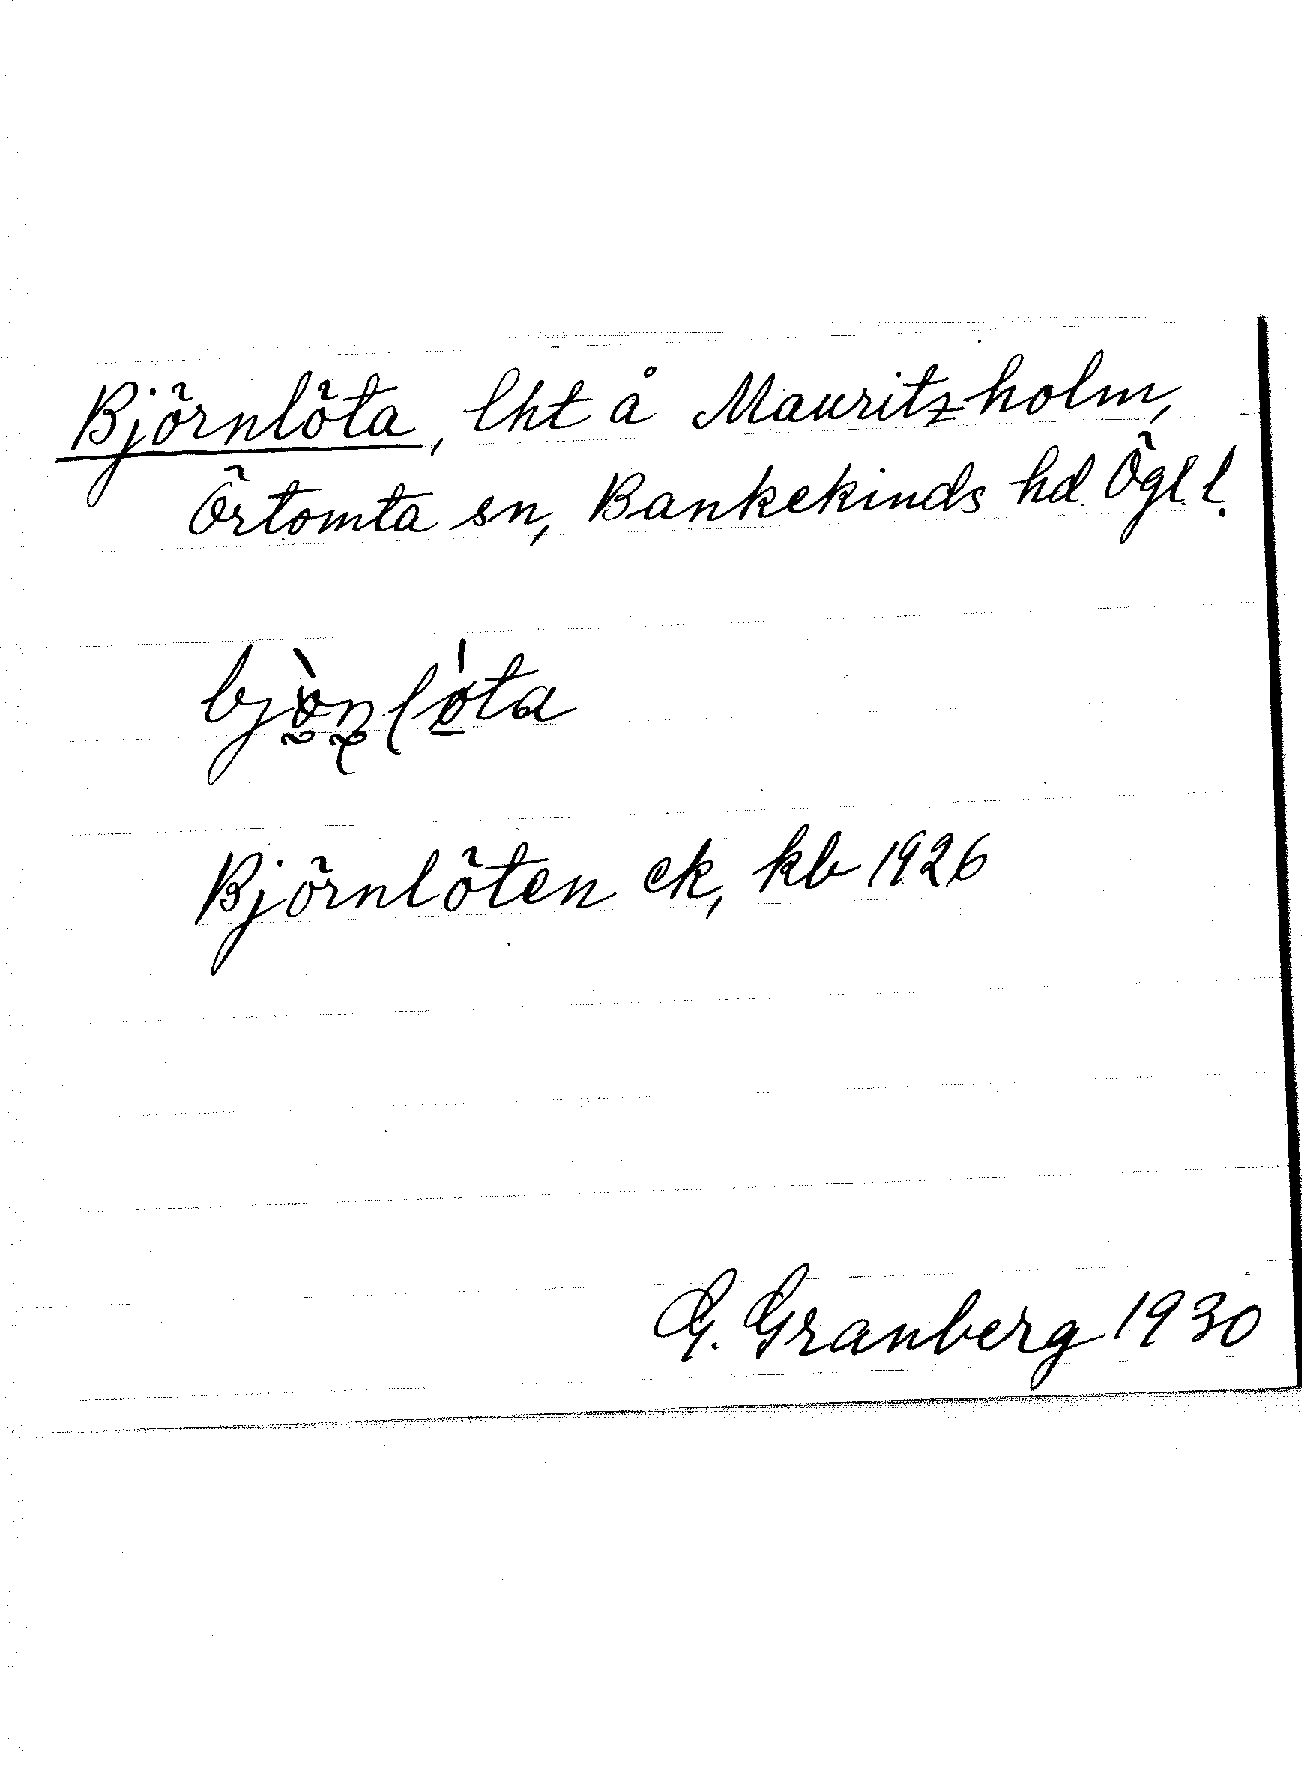 Björnlöta, lht å Mauritzholm,
Örtomta sn, Bankekinds hd Ögl l.
bjø̀n̥lǿta
Björnlöten ek, kb 1926
G. Granberg 1930